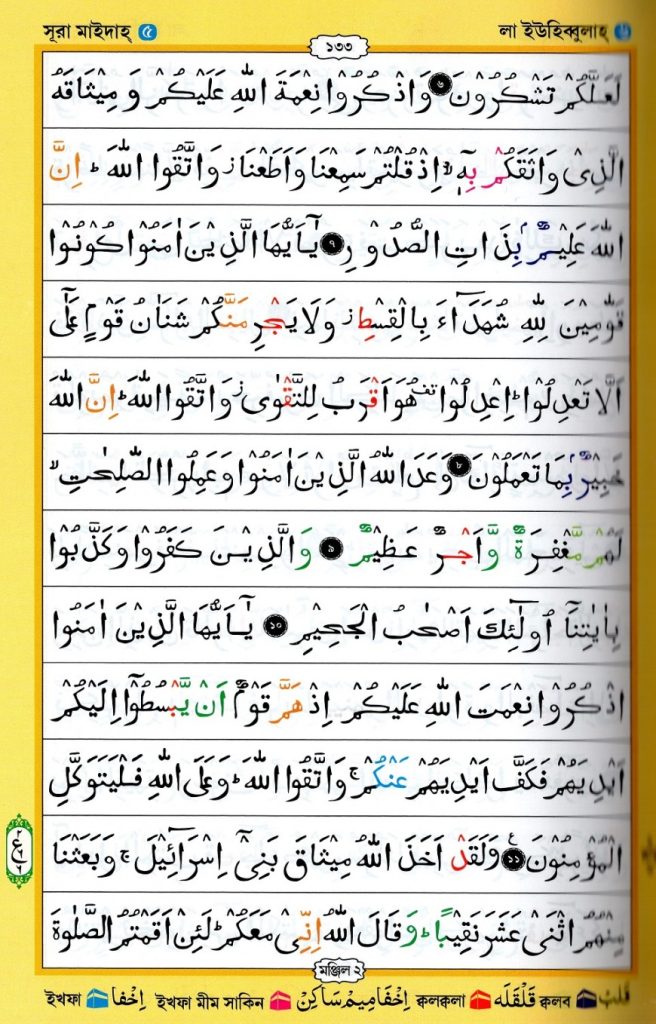 সূরা মাইদাহ্ ৫
লা ইউহিব্বুলাহ্ ৬
১৩৩
لَعَلَّكُمْ تَشْكُرُوْنَ ৬ وَاذْكُرُوْا نِعْمَةَ اللّٰهِ عَلَيْكُمْ وَ مِيْثَاقَهُ
الَّذِىْ وَاثَقَكُمْ بِهٖۤ ۙ اِذْ قُلْتُمْ سَمِعْنَا وَاَطَعْنَا ز وَاتَّقُوا اللّٰهَ ؕ اِنَّ
اللّٰهَ عَلِيْمٌۢ بِذَاتِ الصُّدُوْرِ ৭ يٰۤاَيُّهَا الَّذِيْنَ اٰمَنُوْا كُوْنُوْا
قَوّٰمِيْنَ لِلّٰهِ شُهَدَآءَ بِالْقِسْطِ ز وَلَا يَجْرِمَنَّكُمْ شَنَاٰنُ قَوْمٍ عَلٰٓى
اَلَّا تَعْدِلُوْا ؕ اِعْدِلُوْا قف هُوَ اَقْرَبُ لِلتَّقْوٰى ز وَاتَّقُوا اللّٰهَ ؕ اِنَّ اللّٰهَ
خَبِيْرٌۢ بِمَا تَعْمَلُوْنَ ৮ وَعَدَ اللّٰهُ الَّذِيْنَ اٰمَنُوْا وَعَمِلُوا الصّٰلِحٰتِ ۙ
لَهُمْ مَّغْفِرَةٌ وَّاَجْرٌ عَظِيْمٌ ৯ وَالَّذِيْنَ كَفَرُوْا وَكَذَّبُوْا
بِاٰيٰتِنَاۤ اُولٰٓئِكَ اَصْحٰبُ الْجَحِيْمِ ১০ يٰۤاَيُّهَا الَّذِيْنَ اٰمَنُوا
اذْكُرُوْا نِعْمَتَ اللّٰهِ عَلَيْكُمْ اِذْ هَمَّ قَوْمٌ اَنْ يَّبْسُطُوْۤا اِلَيْكُمْ
اَيْدِيَهُمْ فَكَفَّ اَيْدِيَهُمْ عَنْكُمْ ۚ وَاتَّقُوا اللّٰهَ ؕ وَعَلَى اللّٰهِ فَلْيَتَوَكَّلِ
الْمُؤْمِنُوْنَ ১১ وَلَقَدْ اَخَذَ اللّٰهُ مِيْثَاقَ بَنِىْۤ اِسْرَآئِيْلَ ۚ وَبَعَثْنَا
مِنْهُمُ اثْنَىْ عَشَرَ نَقِيْبًا ؕ وَقَالَ اللّٰهُ اِنِّىْ مَعَكُمْ ؕ لَئِنْ اَقَمْتُمُ الصَّلٰوةَ
ع
মঞ্জিল ২
ইখফা اِخْفَا ইখফা মীম সাকিন اِخْفَا مِيْمْ سَاكِنْ ক্বলক্বলা قَلْقَلَه ক্বলব قَلْبْ